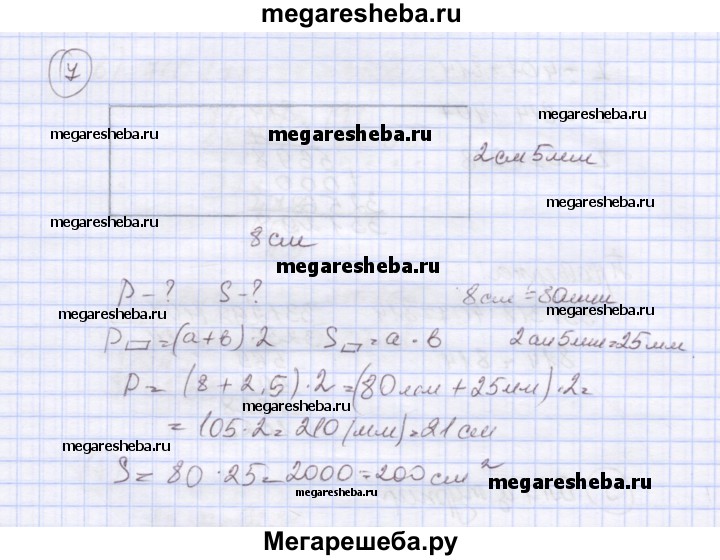 megaresheba.ru
7
megaresheba.ru
megaresheba.ru megaresheba.ru
2см 5мм
megaresheba.ru megaresheba.ru
8см
megaresheba.ru
P - ? S - ? 8см = 80мм
megaresheba.ru megaresheba.ru
P▭ = (a + b) · 2 S▭ = a · b 2см 5мм = 25мм
megaresheba.ru
P = (8 + 2,5) · 2 = (80мм + 25мм) · 2 =
megaresheba.ru
= 105 · 2 = 210 (мм) = 21 см
megaresheba.ru
S = 80 · 25 = 2000 = 200 см²
megaresheba.ru megaresheba.ru
Мегарешеба.ру